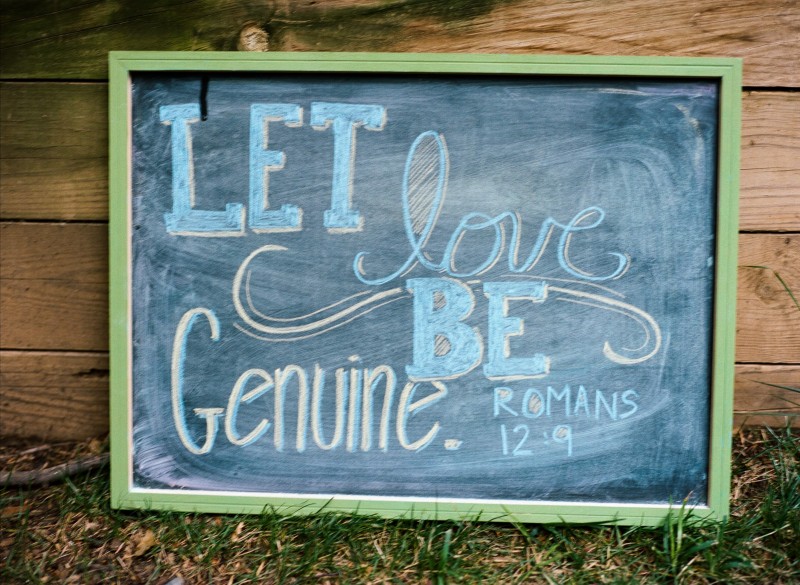 LET love
BE
Genuine.
ROMANS
12:9